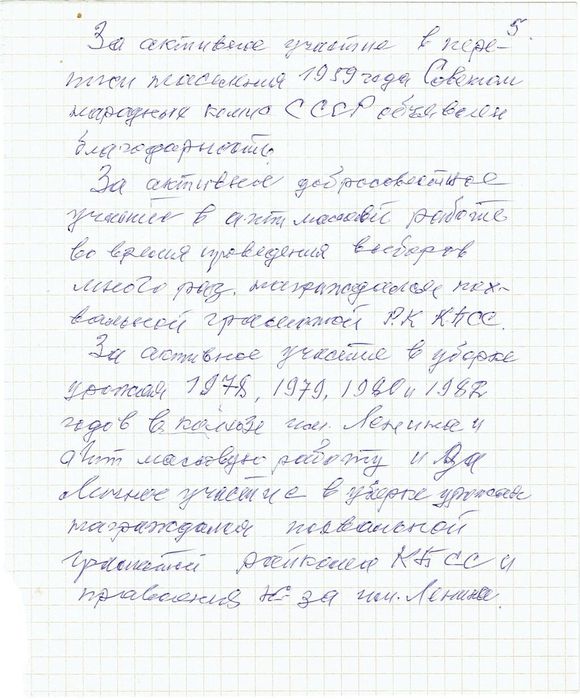 5.
За активное участие в пере-
писи населения 1959 года Советом
народных комис СССР объявлен
благодарность.
За активное добросовестное
участие в агит массовой работе
во время проведения выборов
много раз. награждался пох-
вальной грамотой Р.К КПСС.
За активное участие в уборке
урожая 1978, 1979, 1980 и 1982
годов в колхозе им. Ленина и
агит массовую работу и за
личное участие в уборке урожая
награждался похвальной
грамотой райкома КПСС и
правления К-за им. Ленина.